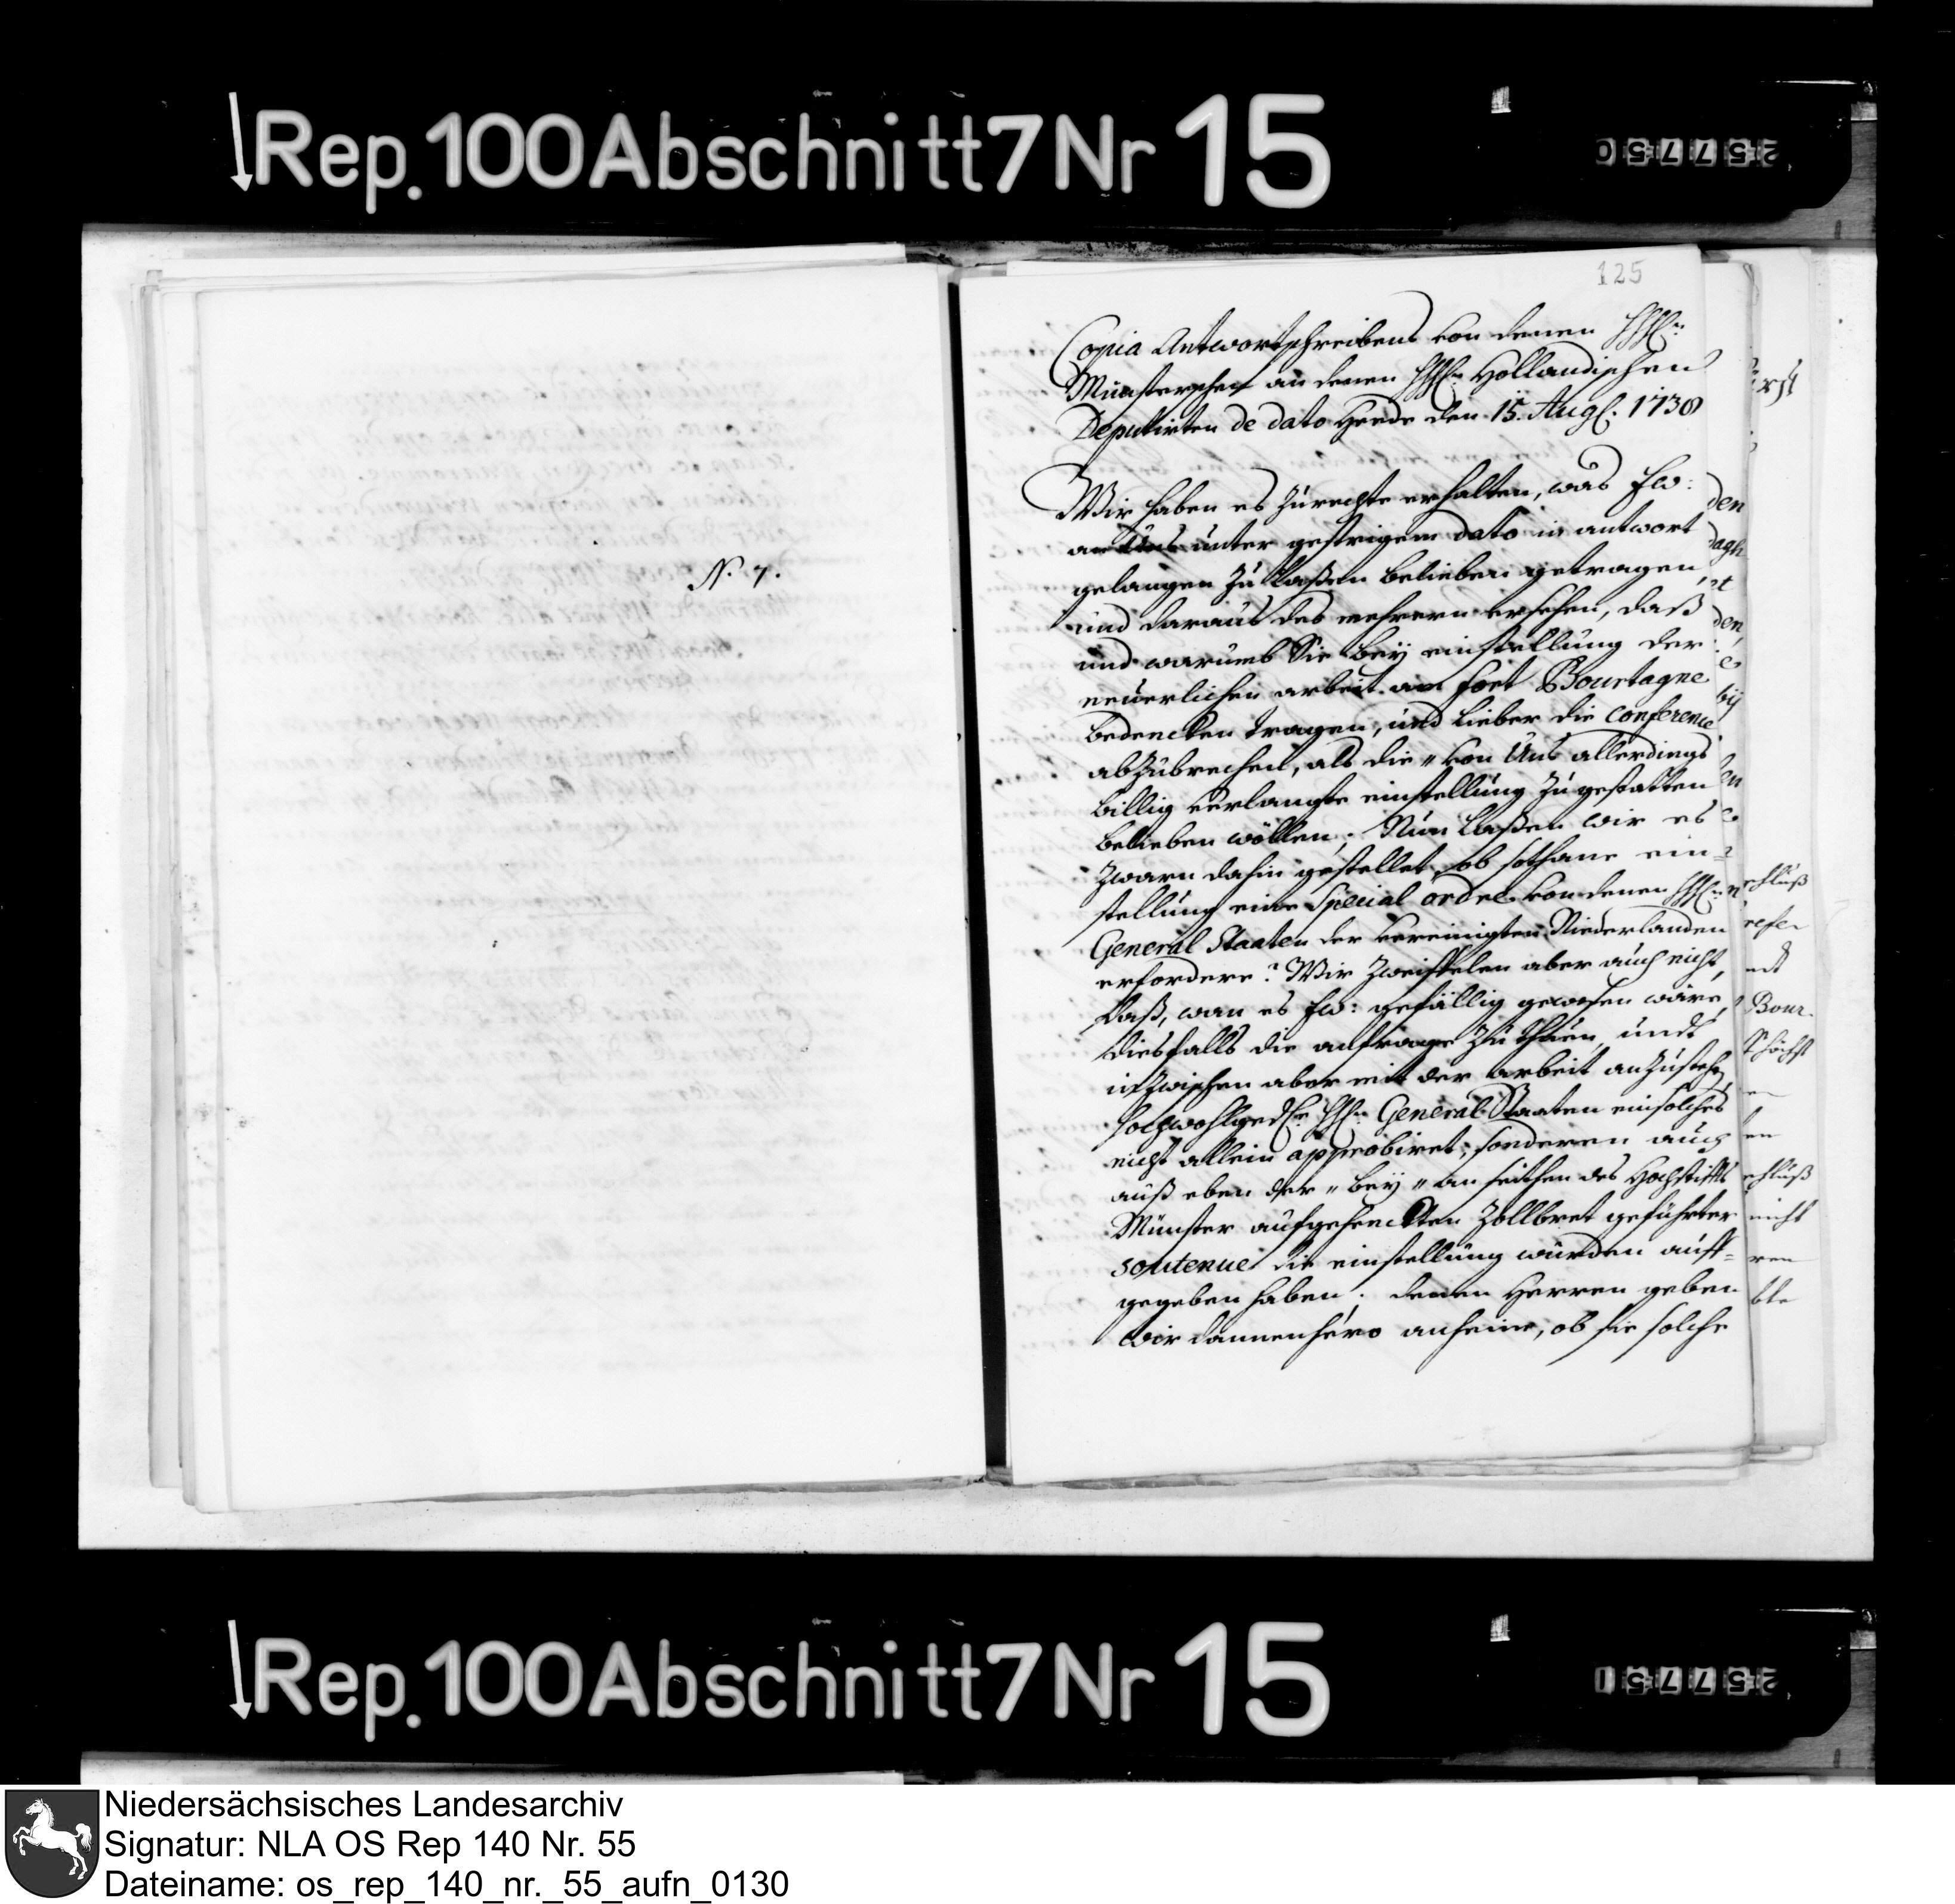 Rep. 100 Abschnitt 7 Nr 15
257750
N. 7.
125
Copia Antwortschreibens von denen HHn
Münsterschen an denen HHn Hollandischen
Deputirten de dato Heede den 15. Aug. 1738
Wir haben es zurechte erhalten, was Ew:
an Uns unter gestrigem dato in antwort
gelangen zu laßen belieben getragen,
und daraus des mehrern ersehen, daß
und warumb Sie bey einstellung der
neuerlichen arbeit am fort Bourtagne
bedencken tragen, und lieber die conference
abzubrechen, als die von Uns allerdings
billig verlangte einstellung zu gestatten
belieben wöllen; Nun laßen wir es
zwarn dahin gestellet, ob sothane ein=
stellung eine Special ordre von denen HHn
General Staaten der vereinigten Niederlanden
erfordere? Wir zweiffelen aber auch nicht,
daß, wan es Ew: gefällig gewesen wäre,
diesfalls die anfrage zu thuen, undt
inzwischen aber mit der arbeit anzustehen
hochwohlged. HHn General Staaten ein solches
nicht allein approbiret, sonderen auch
auß eben der bey an seithen des Hochstiffts
Münster aufgehenckten Zollbret geführter
soutenue die einstellung würden auff=
gegeben haben; denen Herren geben
wir dannenhero anheim, ob sie solche
den
dagh
et
den,
bij
schluß
refe
Bour
schluß
nicht
ren
Rep. 100 Abschnitt 7 Nr 15
257751
Niedersächsisches Landesarchiv
Signatur: NLA OS Rep 140 Nr. 55
Dateiname: os_rep_140_nr._55_aufn_0130